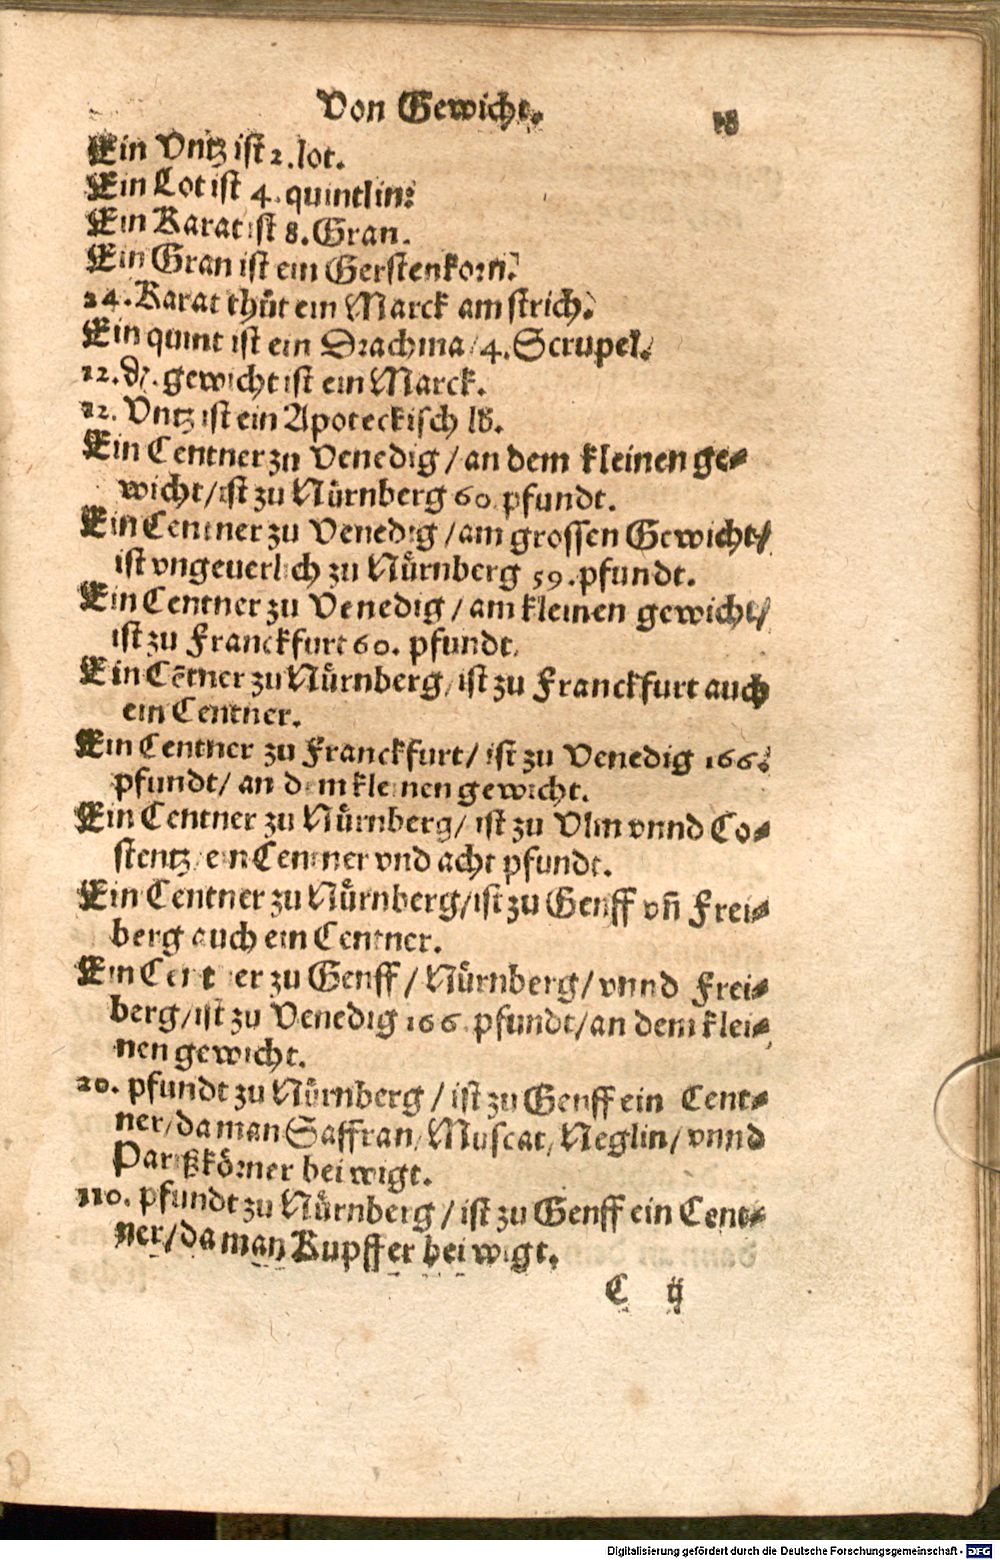 Von Gewicht.
Ein Vntz ist 2.lot.
Ein Lot ist 4.quintlin:
Ein Karat ist 8.Gran.
Ein Gran ist ein Gerstenkorn.
24.Karat thůt ein Marck am strich.
Ein quint ist ein Drachma/4.Scrupel.
12.₰. gewicht ist ein Marck.
12. Vntz ist ein Apoteckisch lb.
Ein Centner zu Venedig/an dem kleinen ge-
wicht/ist zu Nürnberg 60 pfundt.
Ein Centner zu Venedig/am grossen Gewicht/
ist vngeuerlich zu Nürnberg 59.pfundt.
Ein Centner zu Venedig/am kleinen gewicht/
ist zu Franckfurt 60. pfundt.
Ein Cētner zu Nürnberg/ist zu Franckfurt auch
ein Centner.
Ein Centner zu Franckfurt/ist zu Venedig 166.
pfundt/an dem kleinen gewicht.
Ein Centner zu Nürnberg/ist zu Vlm vnnd Co-
stentz/ein Centner vnd acht pfundt.
Ein Centner zu Nürnberg/ist zu Genff vñ Frei-
berg auch ein Centner.
Ein Centner zu Genff/Nürnberg/vnnd Frei-
berg/ist zu Venedig 166.pfundt/an dem klei-
nen gewicht.
20. pfundt zu Nürnberg/ist zu Genff ein Cent-
ner/da man Saffran/Muscat/Neglin/vnnd
Parißkörner bei wigt.
110. pfundt zu Nürnberg/ist zu Genff ein Cent-
ner/da man Kupffer bei wigt.
C ij
Digitalisierung gefördert durch die Deutsche Forschungsgemeinschaft - DFG